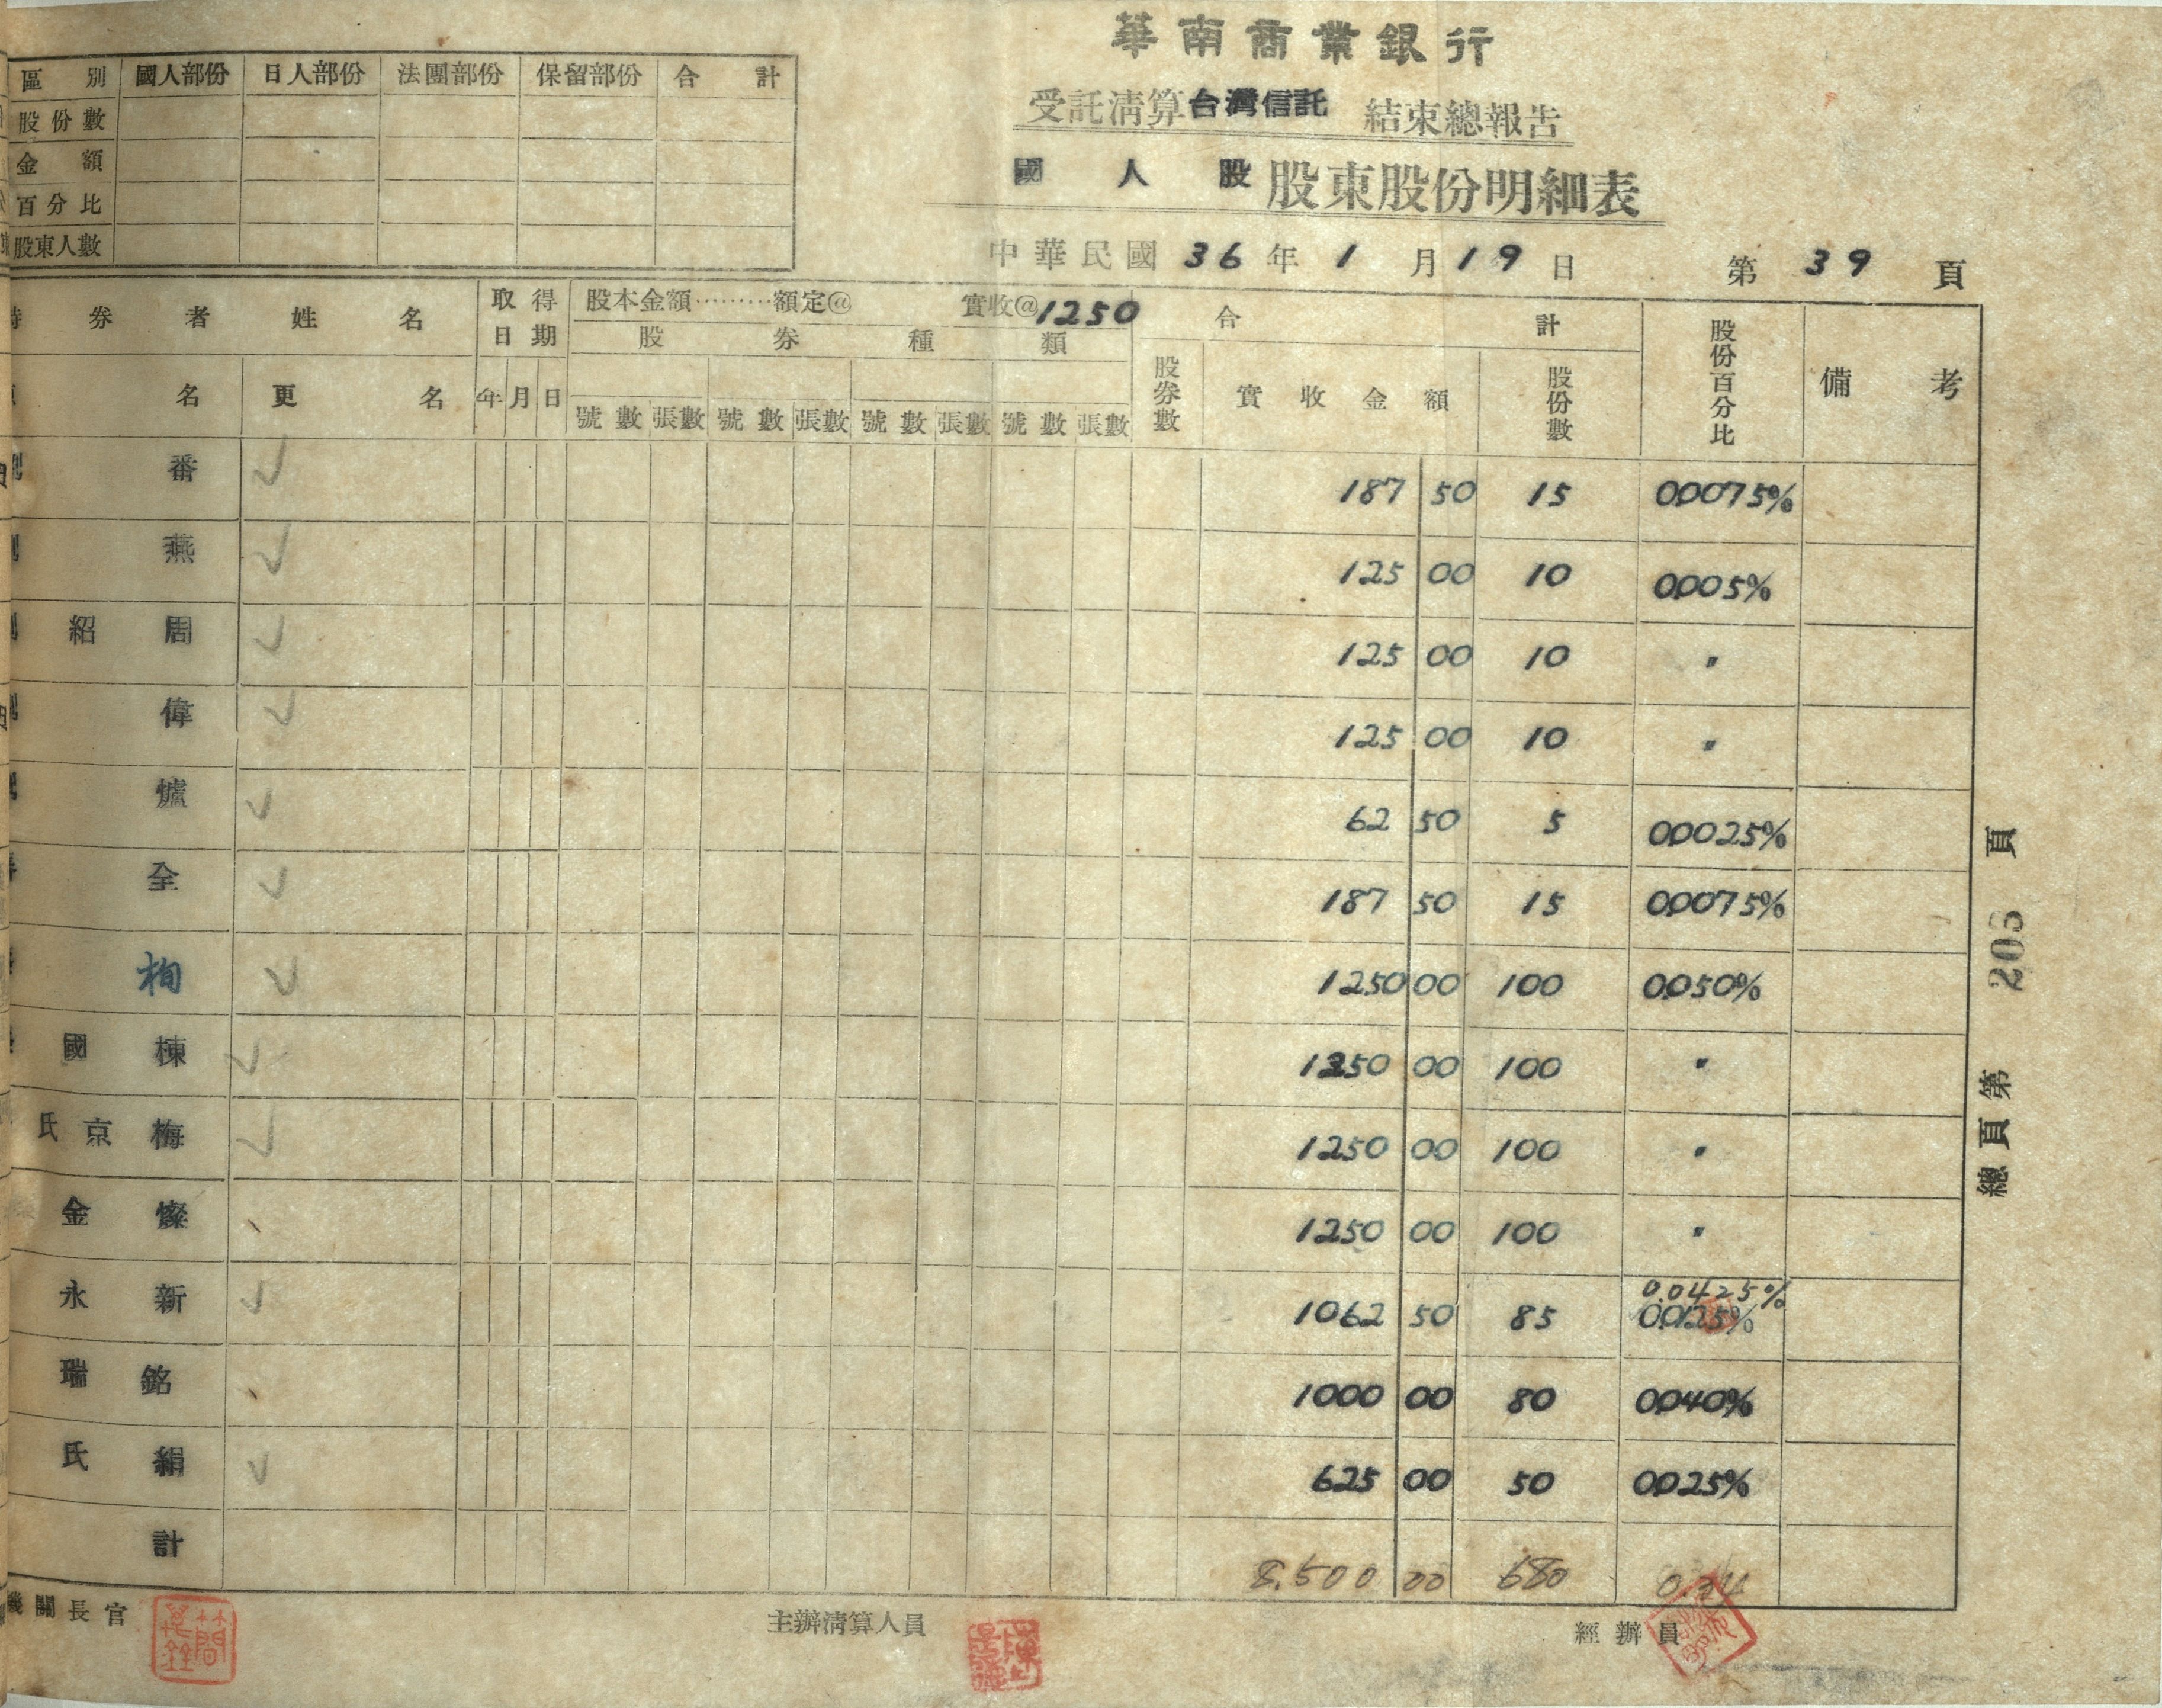 華南商業銀行
受託清算台灣信託 結束總報告
國人股 股東股份明細表
中華民國 36 年 1 月 19 日 第 39 頁
區別 國人部份 日人部份 法團部份 保留部份 合計
股份數
金額
百分比
股東人數
券者姓名 取得日期 股本金額………額定@ 實收@1250 合計 股份百分比 備考
股券種類
名 更名 年 月 日 號數 張數 號數 張數 號數 張數 號數 張數 股券數 實收金額 股份數
番 187 50 15 00075%
燕 125 00 10 0005%
紹周 125 00 10 〃
偉 125 00 10 〃
爐 62 50 5 00025%
全 187 50 15 00075%
栒 1250 00 100 0050%
國棟 1250 00 100 〃
氏京梅 1250 00 100 〃
金燦 1250 00 100 〃
0.0425%
永新 1062 50 85 00125%
瑞銘 1000 00 80 0040%
氏絹 625 00 50 0025%
計 8,500 00 680 0.34
機關長官 主辦清算人員 經辦員
總頁第 205 頁